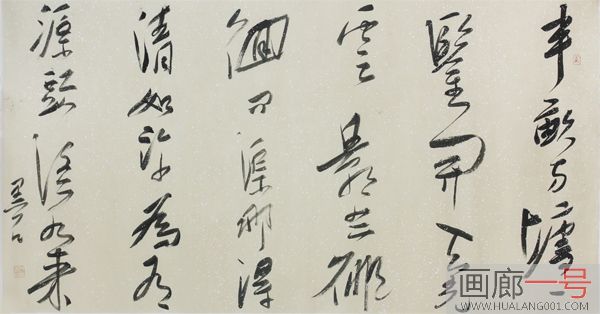 半畝方塘一
鑒開天光
雲影共徘
徊问渠那得
清如許為有
源頭活水来
画廊一号
WWW.HUALANG001.COM